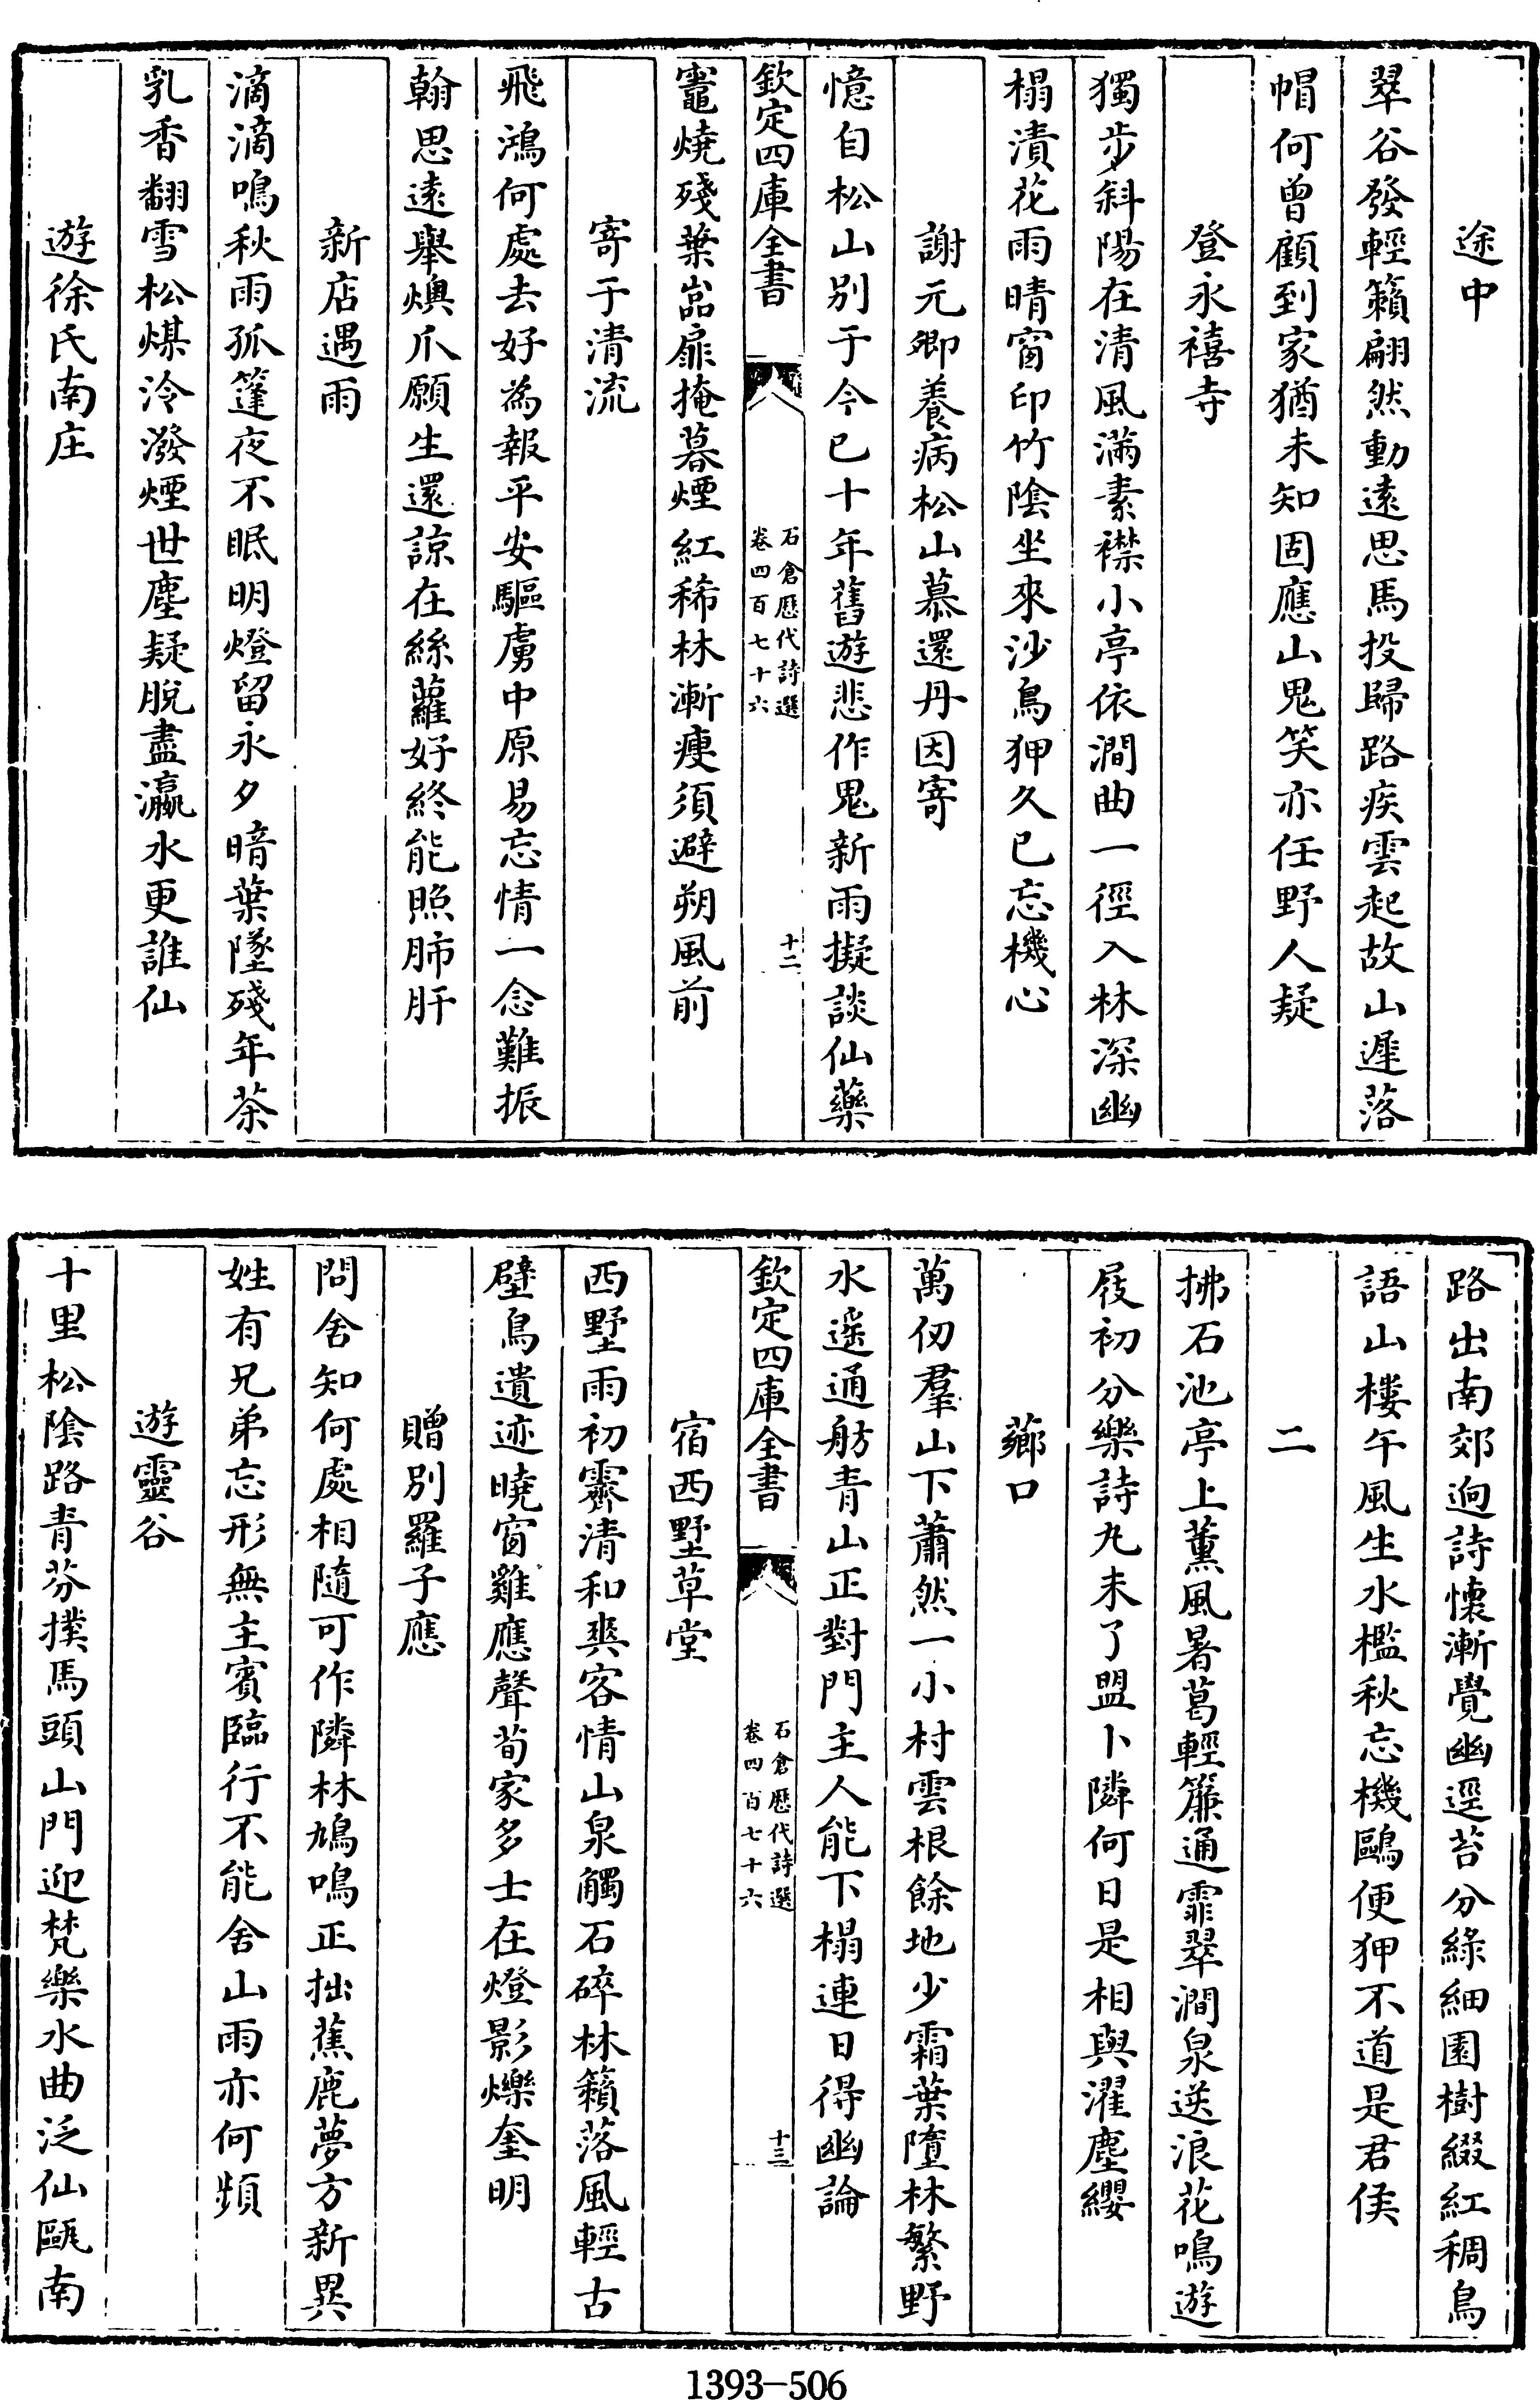 途中
翠谷發輕籟翩然動遠思馬投歸路疾雲起故山遲落
帽何曾顧到家猶未知固應山鬼笑亦任野人疑
登永禧寺
獨步斜陽在清風滿素襟小亭依澗曲一徑入林深幽
榻漬花雨晴窗印竹陰坐來沙鳥狎久已忘機心
謝元卿養病松山慕還丹因寄
憶自松山別于今已十年舊遊悲作鬼新雨擬談仙藥
欽定四庫全書
石倉歷代詩選
卷四百七十六
十二
竈燒殘葉嵓扉掩暮煙紅稀林漸瘦須避朔風前
寄于清流
飛鴻何處去好為報平安驅虜中原易忘情一念難振
翰思遠舉燠爪願生還諒在絲蘿好終能照肺肝
新店遇雨
滴滴鳴秋雨孤篷夜不眠明燈留永夕暗葉墜殘年茶
乳香翻雪松煤泠潑煙世塵疑脫盡瀛水更誰仙
遊徐氏南庄
路出南郊迥詩懷漸覺幽逕苔分綠細園樹綴紅稠鳥
語山樓午風生水檻秋忘機鷗便狎不道是君侯
二
拂石池亭上薰風暑葛輕簾通霏翠澗泉送浪花鳴遊
屐初分樂詩九未了盟卜隣何日是相與濯塵纓
薌口
萬仞羣山下蕭然一小村雲根餘地少霜葉墮林繁野
水遥通舫青山正對門主人能下榻連日得幽論
欽定四庫全書
石倉歷代詩選
卷四百七十六
十三
宿西墅草堂
西墅雨初霽清和爽客情山泉觸石碎林籟落風輕古
壁鳥遺迹曉窗雞應聲荀家多士在燈影爍奎明
贈別羅子應
問舍知何處相隨可作隣林鳩鳴正拙蕉鹿夢方新異
姓有兄弟忘形無主賓臨行不能舍山雨亦何頻
遊靈谷
十里松陰路青芬撲馬頭山門迎梵樂水曲泛仙甌南
1393-506